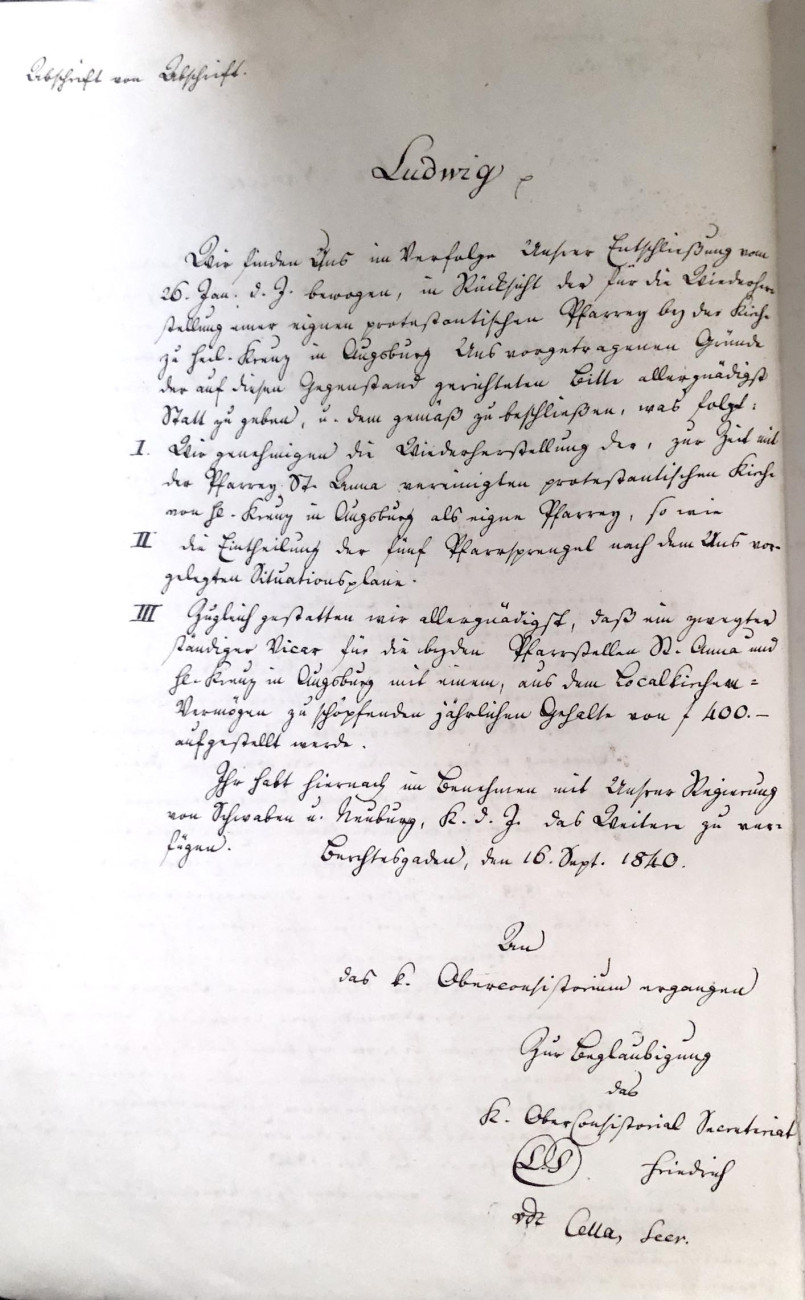 Abschrift von Abschrift.
Ludwig
Wir finden Uns im Verfolge Unsrer Entschließung vom
26. Jan. d. J. bewogen, in Rücksicht der für die Wiederher-
stellung einer eignen protestantischen Pfarrey bey der Kirche
zu heil. Kreuz in Augsburg Uns vorgetragenen Gründe
der auf diesen Gegenstand gerichteten Bitte allergnädigst
Statt zu geben, u. dem gemäß zu beschließen, was folgt:
I. Wir genehmigen die Wiederherstellung der, zur Zeit mit
der Pfarrey St. Anna vereinigten protestantischen Kirche
von hl. Kreuz in Augsburg als eigne Pfarrey, so wie
II die Eintheilung der fünf Pfarrsprengel nach dem Uns vor-
gelegten Situationsplane.
III Zugleich gestatten wir allergnädigst, daß ein zweyter
ständiger Vicar für die beyden Pfarrstellen St. Anna und
hl. Kreuz in Augsburg mit einem, aus dem Localkirchen=
Vermögen zu schöpfenden jährlichen Gehalte von f 400.–
aufgestellt werde.
Ihr habt hiernach im Benehmen mit Unsrer Regierung
von Schwaben u. Neuburg, K. d. J. das Weitere zu ver-
fügen.
Berchtesgaden, den 16. Sept. 1840.
An
das k. Oberconsistorium ergangen
Zur Beglaubigung
das
K. Oberconsistorial Secretariat
(L.S.) Friedrich
vdt Cella, Secr.